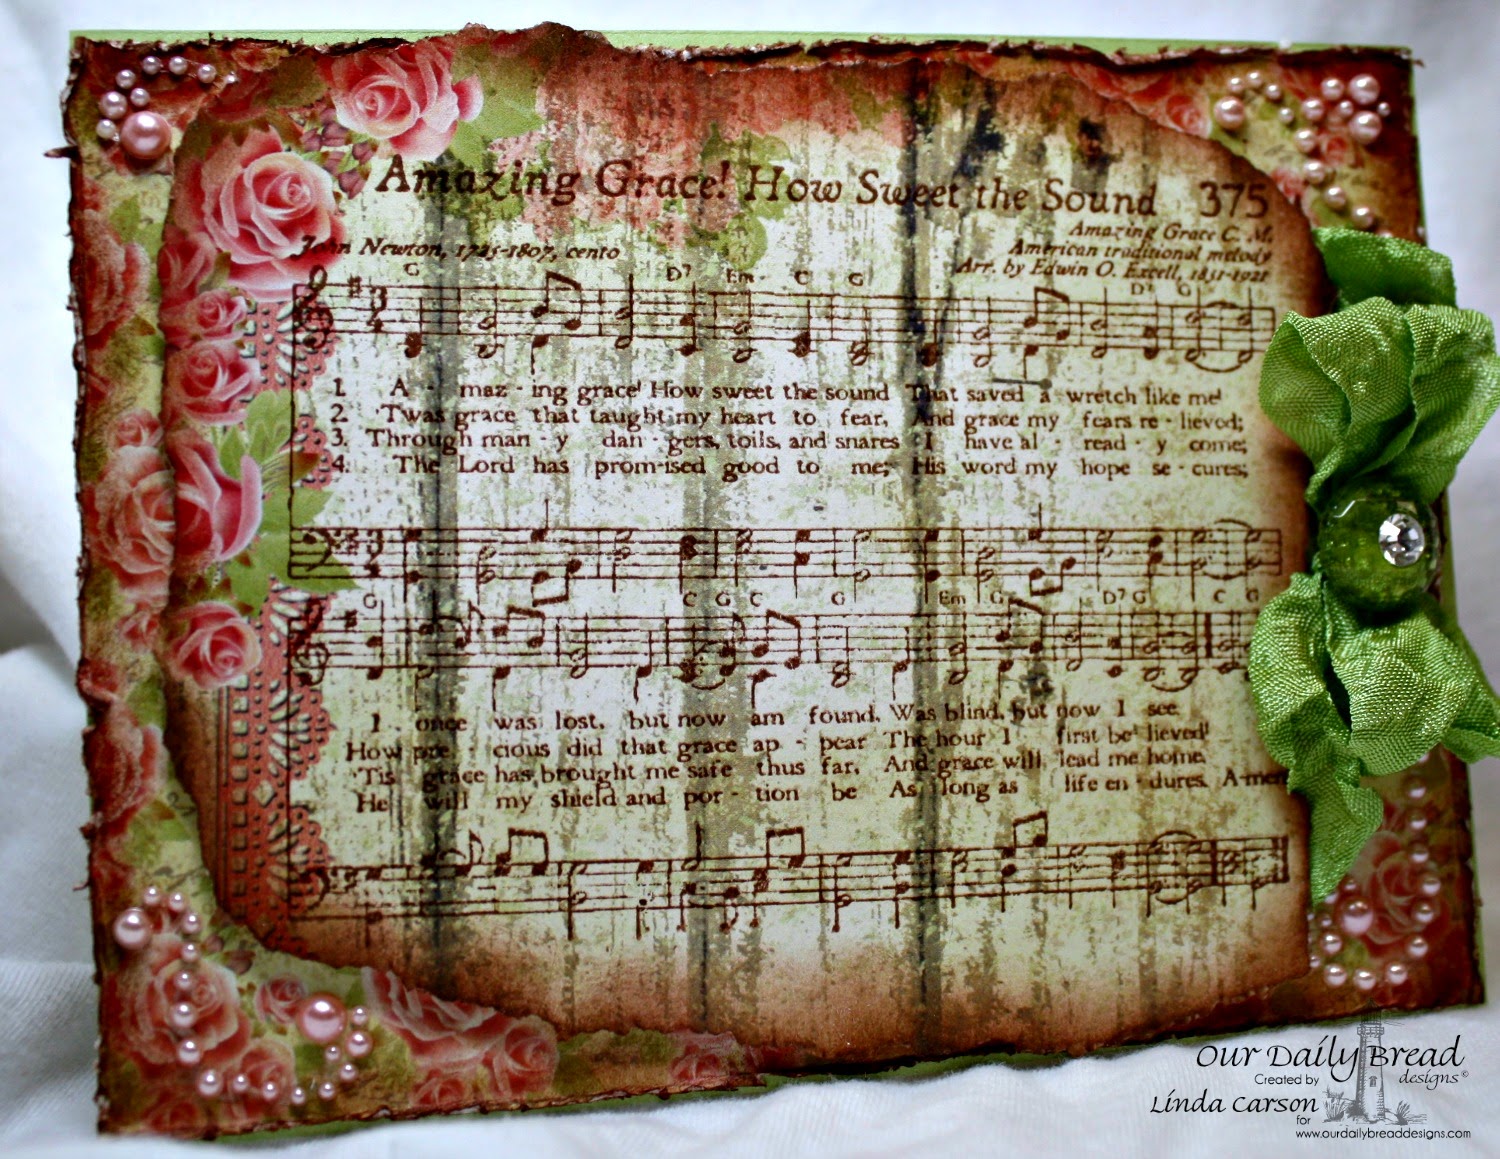 Amazing Grace! How Sweet the Sound 375
John Newton, 1725-1807, cento
Amazing Grace C. M.
American traditional melody
Arr. by Edwin O. Excell, 1851-1921
G D7 Em C G D7 G
3 4
1. A - maz - ing grace! How sweet the sound That saved a wretch like me!
2. 'Twas grace that taught my heart to fear, And grace my fears re - lieved;
3. Through man - y dan - gers, toils, and snares I have al - read - y come;
4. The Lord has prom-ised good to me; His word my hope se - cures;
3 4
G C G C G Em G D7 G C G
I once was lost, but now am found, Was blind, but now I see.
How pre - cious did that grace ap - pear The hour I first be - lieved!
'Tis grace has brought me safe thus far, And grace will lead me home.
He will my shield and por - tion be As long as life en - dures. A-men
Our Daily Bread
designs©
Created by
Linda Carson
for
www.ourdailybreaddesigns.com